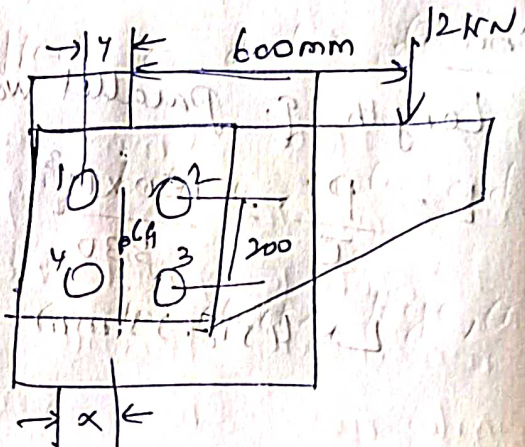 Y
600mm
12KN
1
2
CG
200
4
3
x